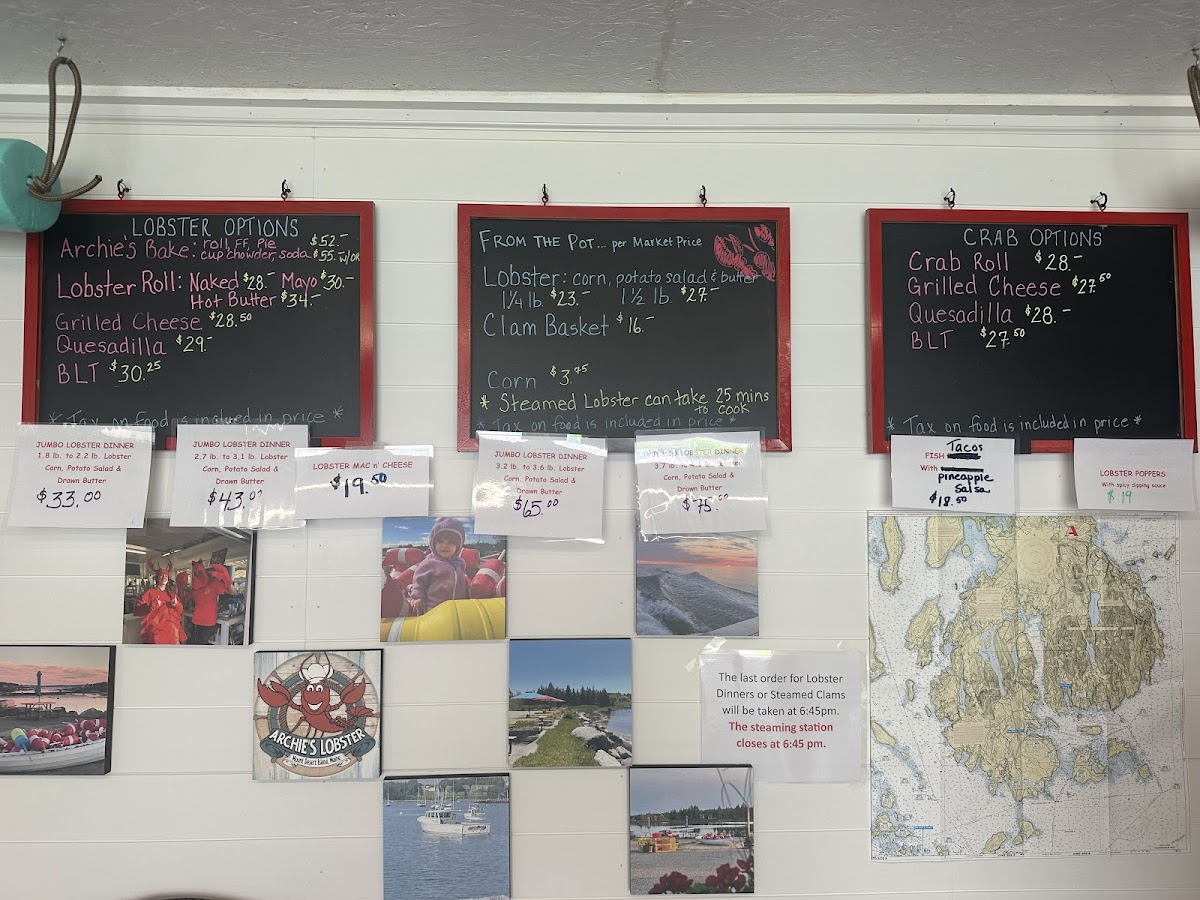 LOBSTER OPTIONS
Archie's Bake: roll, FF, Pie $52.-
cup chowder, soda $55. w/OR
Lobster Roll: Naked $28.- Mayo $30.-
Hot Butter $34.-
Grilled Cheese $28.50
Quesadilla $29.-
BLT $30.25
* Tax on food is inclued in price *
FROM THE POT... per Market Price
Lobster: corn, potato salad & butter
1 1/4 lb. $23.- 1 1/2 lb. $27.-
Clam Basket $16.-
Corn $3.75
* Steamed Lobster can take 25 mins
to cook
* Tax on food is included in price *
CRAB OPTIONS
Crab Roll $28.-
Grilled Cheese $27.50
Quesadilla $28.-
BLT $27.50
* Tax on food is included in price *
JUMBO LOBSTER DINNER
1.8 lb. to 2.2 lb. Lobster
Corn, Potato Salad &
Drawn Butter
$33.00
JUMBO LOBSTER DINNER
2.7 lb. to 3.1 lb. Lobster
Corn, Potato Salad &
Drawn Butter
$43.00
LOBSTER MAC n' CHEESE
$19.50
JUMBO LOBSTER DINNER
3.2 lb. to 3.6 lb. Lobster
Corn, Potato Salad &
Drawn Butter
$65.00
JUMBO LOBSTER DINNER
3.7 lb. to lb. Lobster
Corn, Potato Salad &
Drawn Butter
$75.00
Tacos
FISH
With
pineapple
salsa
$18.50
LOBSTER POPPERS
With spicy dipping sauce
$19
A
ARCHIE'S LOBSTER
Mount Desert Island, Maine
The last order for Lobster
Dinners or Steamed Clams
will be taken at 6:45pm.
The steaming station
closes at 6:45 pm.